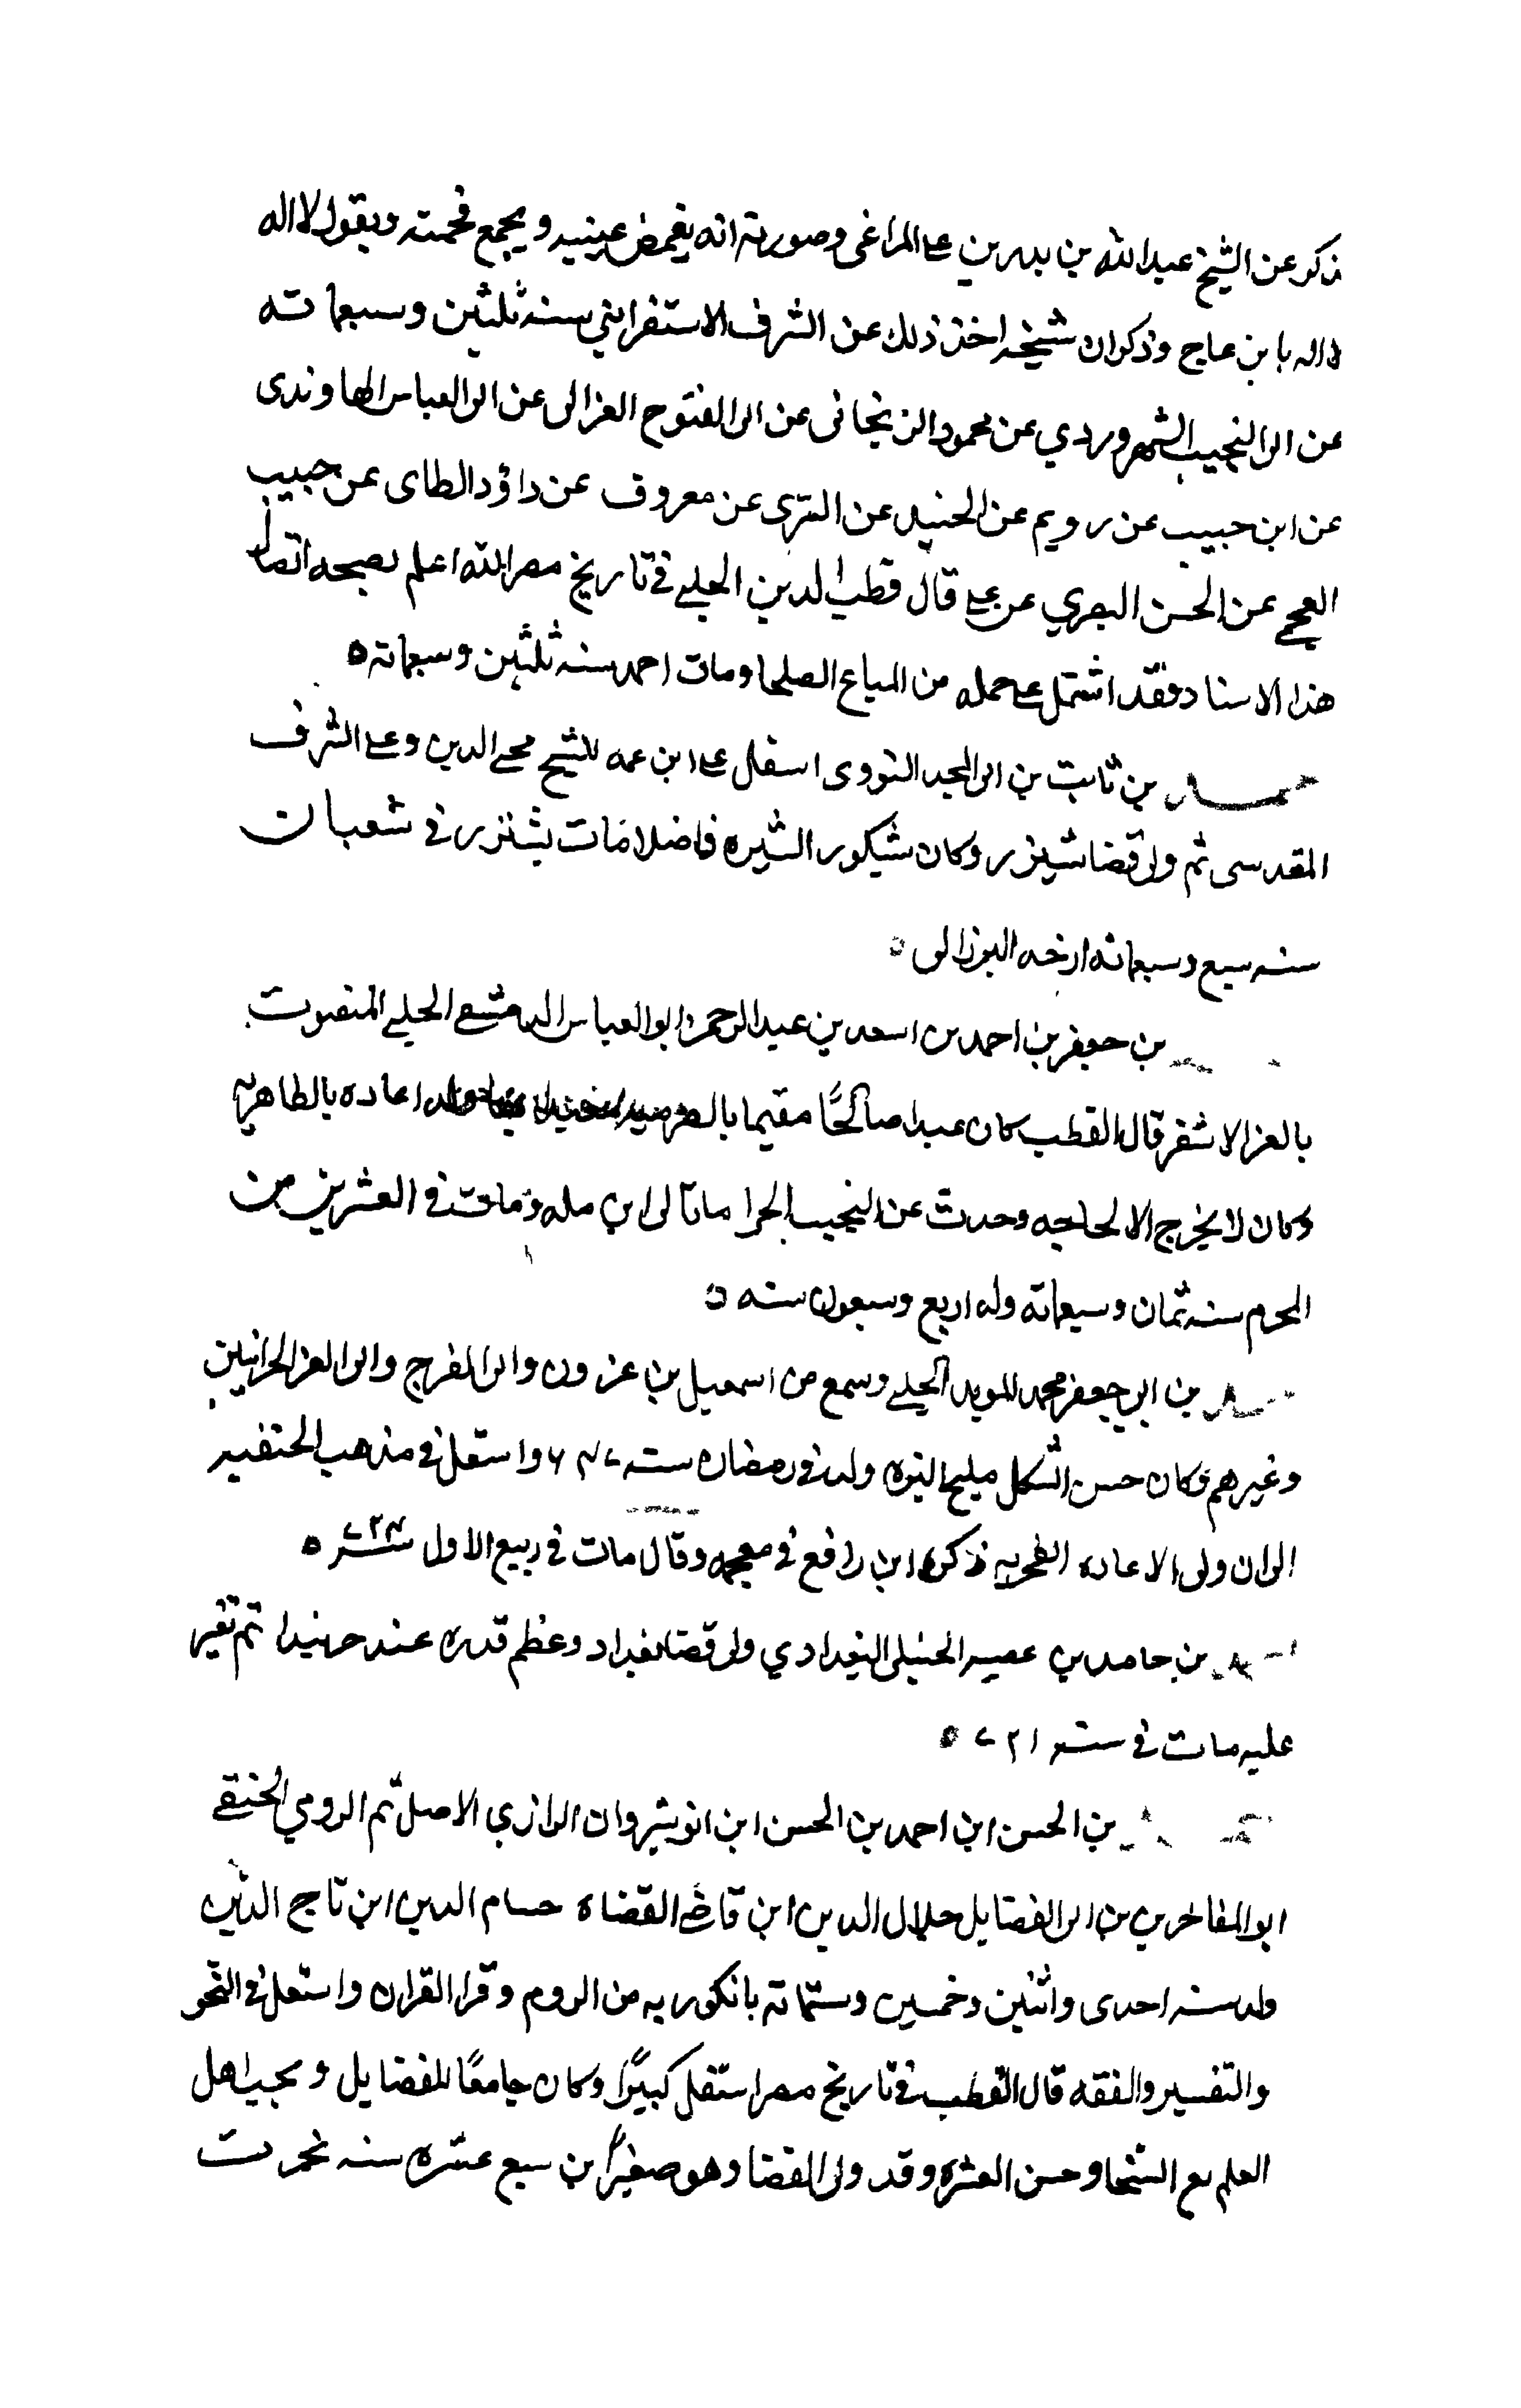 ذكر عن الشيخ عبد الله بن بدر بن على المراغى وصورته انه يغمض عينيه ويجمع وبقول لا اله
لا اله وذكر ان شيخه اخذ ذلك عن الشرف الاسفراينى سنه ثلثين وسبعماته
عن ابى النجيب السهروردي عن محمود الزنجانى عن ابى الفتوح الغزالى عن ابى العباس النهاوندى
عن ابن حبيب عن رويم عن الجنيد عن السرى عن معروف عن داؤد الطاى عن حبيب
العجمى عن الحسن البصري عن على قال قطب الدين الحلبى فى تاريخ مصر الله اعلم بصحه اتصال
هذا الاسناد فقد اشتمل على جمله من الصلحا ومات احمد سنه ثلثين وسبعماته ه
بن ثابت بن ابى المجد النووى اشتغل على ابن عمه الشيخ محى الدين وعلى الشرف
المقدسى ثم ولى قضا شيزر وكان شكور السيره فاضلا مات بشيزر فى شعبان
سنه سبع وسبعماته ارخه البرزالى ه
بن جعفر بن احمد بن اسعد بن عبد الرحمن ابو العباس الدمشقى الحلبى المنعوت
بالعز الاشقر قال القطب كان عبدا صالحًا مقيما اعاده بالظاهريه
وكان لا يخرج الا لحاجه وحدث عن النجيب الحرانى ومات فى العشرين من
المحرم سنه ثمان وسبعماته وله اربع وسبعون سنه ه
بن ابى جعفر محمد المويد الحلبى وسمع من اسمعيل بن عزون وابى الفرج وابى العز الحرانيين
وغيرهم وكان حسن الشكل مليح البزه ولد فى رمضان سنه ۶۴۷ واشتغل فى مذهب الحنفيه
الى ان ولى الاعاده الفخريه ذكره ابن رافع فى معجمه وقال مات فى ربيع الاول سنه ۷۲۴ ه
بن حامد بن عصيه الحنبلى البغدادي ولى قضا بغداد وعظم قدره عند خربندا ثم تغير
عليه مات فى سنه ۷۲۱ ه
بن الحسن ابن احمد بن الحسن ابن انوشروان الرازي الاصل ثم الرومي الحنفى
ابو المفاخر بن ابى الفضايل جلال الدين ابن قاضى القضاه حسام الدين ابن تاج الدين
ولد سنه احدى واثنين وخمسين وستماته بانكوريه من الروم وقرا القران واشتغل فى النحو
والتفسير والفقه قال القطب فى تاريخ مصر اشتغل كبيرًا وكان جامعًا للفضايل ويحب اهل
العلم مع السخا وحسن العشره وقد ولى القضا وهو صغيرًا بن سبع عشره سنه بخرت